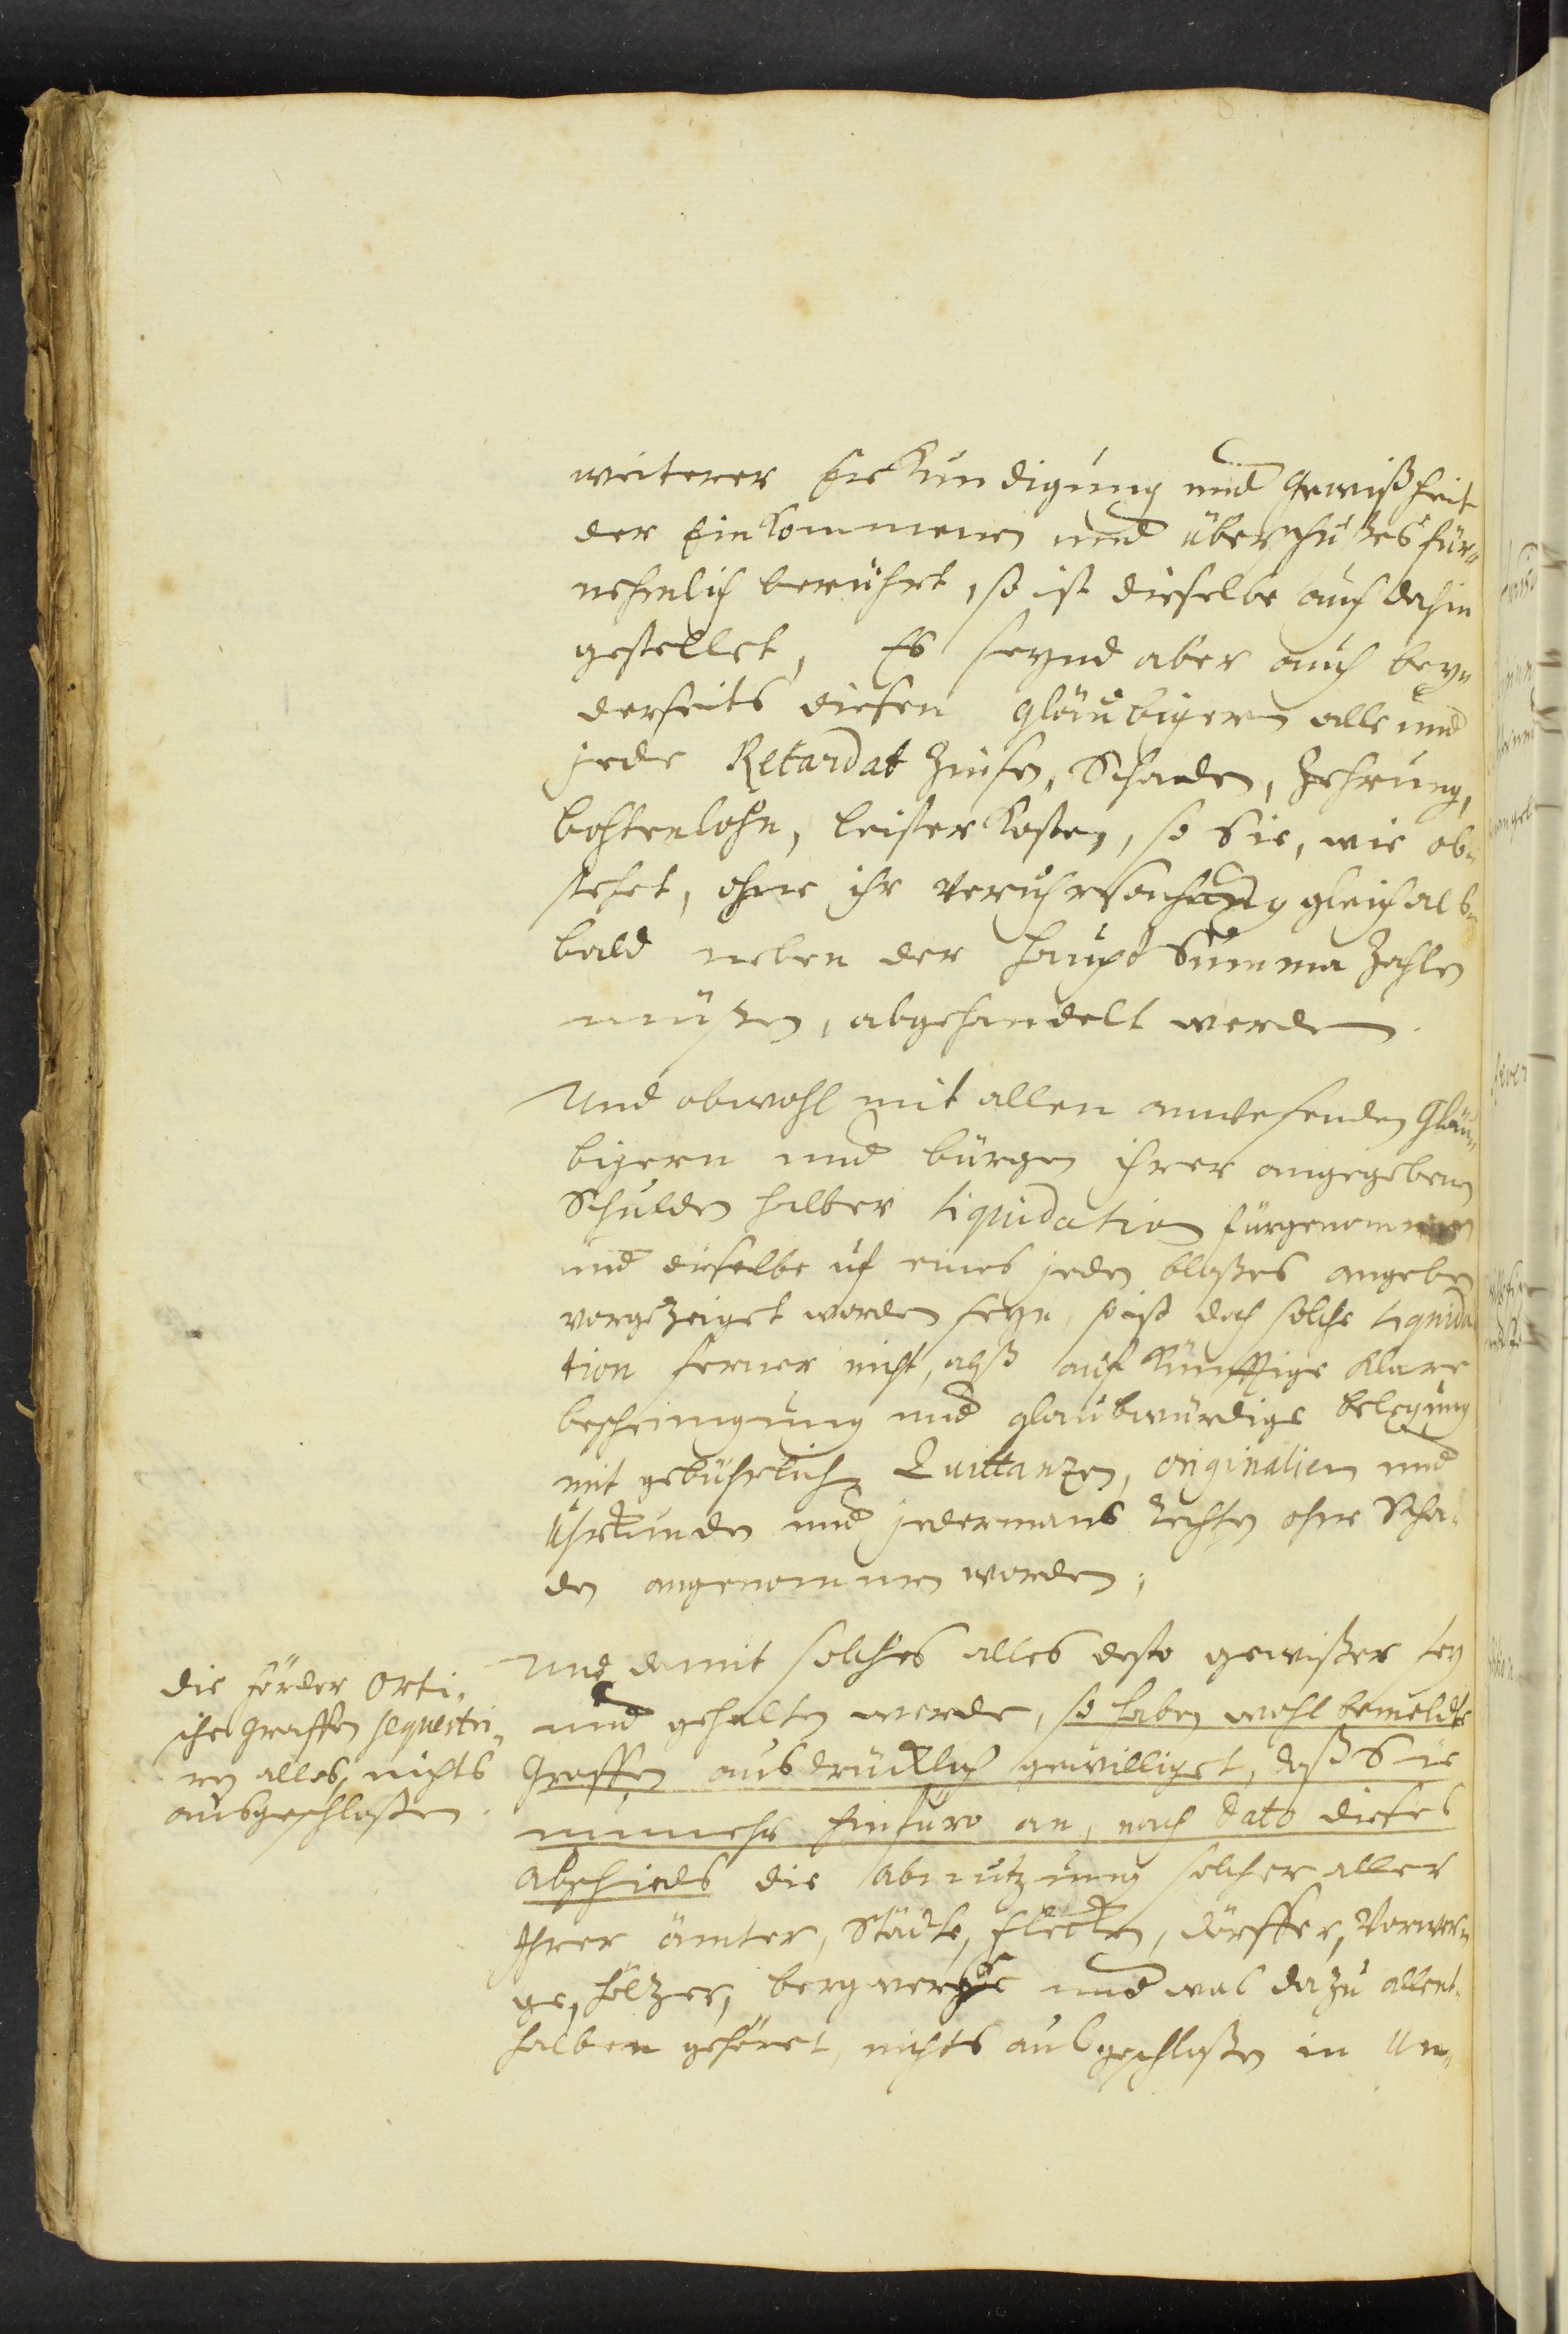 weiterer Erkündigung und Gewißheit
der Einkommenen und überschußes für„
nehmlich berührt, so ist dieselbe auch dahin
gestellet, Es seynd aber auch bey„
derseits diesen Gläubigern alle und
jede Retardat Zinsen, Schaden, Zehrung,
bohtenlohn, leister Kosten, so Sie, wie ob„
stehet, ohne ihr veruhrsachung gleich als„
bald neben der haupt Summa Zahlen
müßen, abgehandelt werden.
Und obwohl mit allen anwesenden Gläu„
bigern und bürgen ihrer angegebenen
Schulden halber liquidation fürgenommen
und dieselbe uf eines jeden bloßes angeben
vorgezeiget worden seyn, so ist doch solche liquida
tion ferner nicht, alß auf künfftige klare
bescheinigung und glaubwürdige belegung
mit gebührlichen Quittanzen, originalien und
Uhrkunden und jedermans Rechten ohne Scha„
den angenommen worden;
Und damit solches alles desto gewißer sey
und gehalten werde, so haben wohl bemeldte
Graffen ausdrücklich gewilliget, daß Sie
nunmehr hinfüro an, nach dato dieses
Abschieds die Abnutzung solcher aller
Ihrer ämter, Städte, Flecken, dörffer, Vorwer„
ge, höltzer, bergwerge und was dazu allent„
halben gehöret, nichts ausgeschloßen in Un„
die förder Orti„
sche Graffen sequestri„
ren alles, nichts
ausgeschloßen.